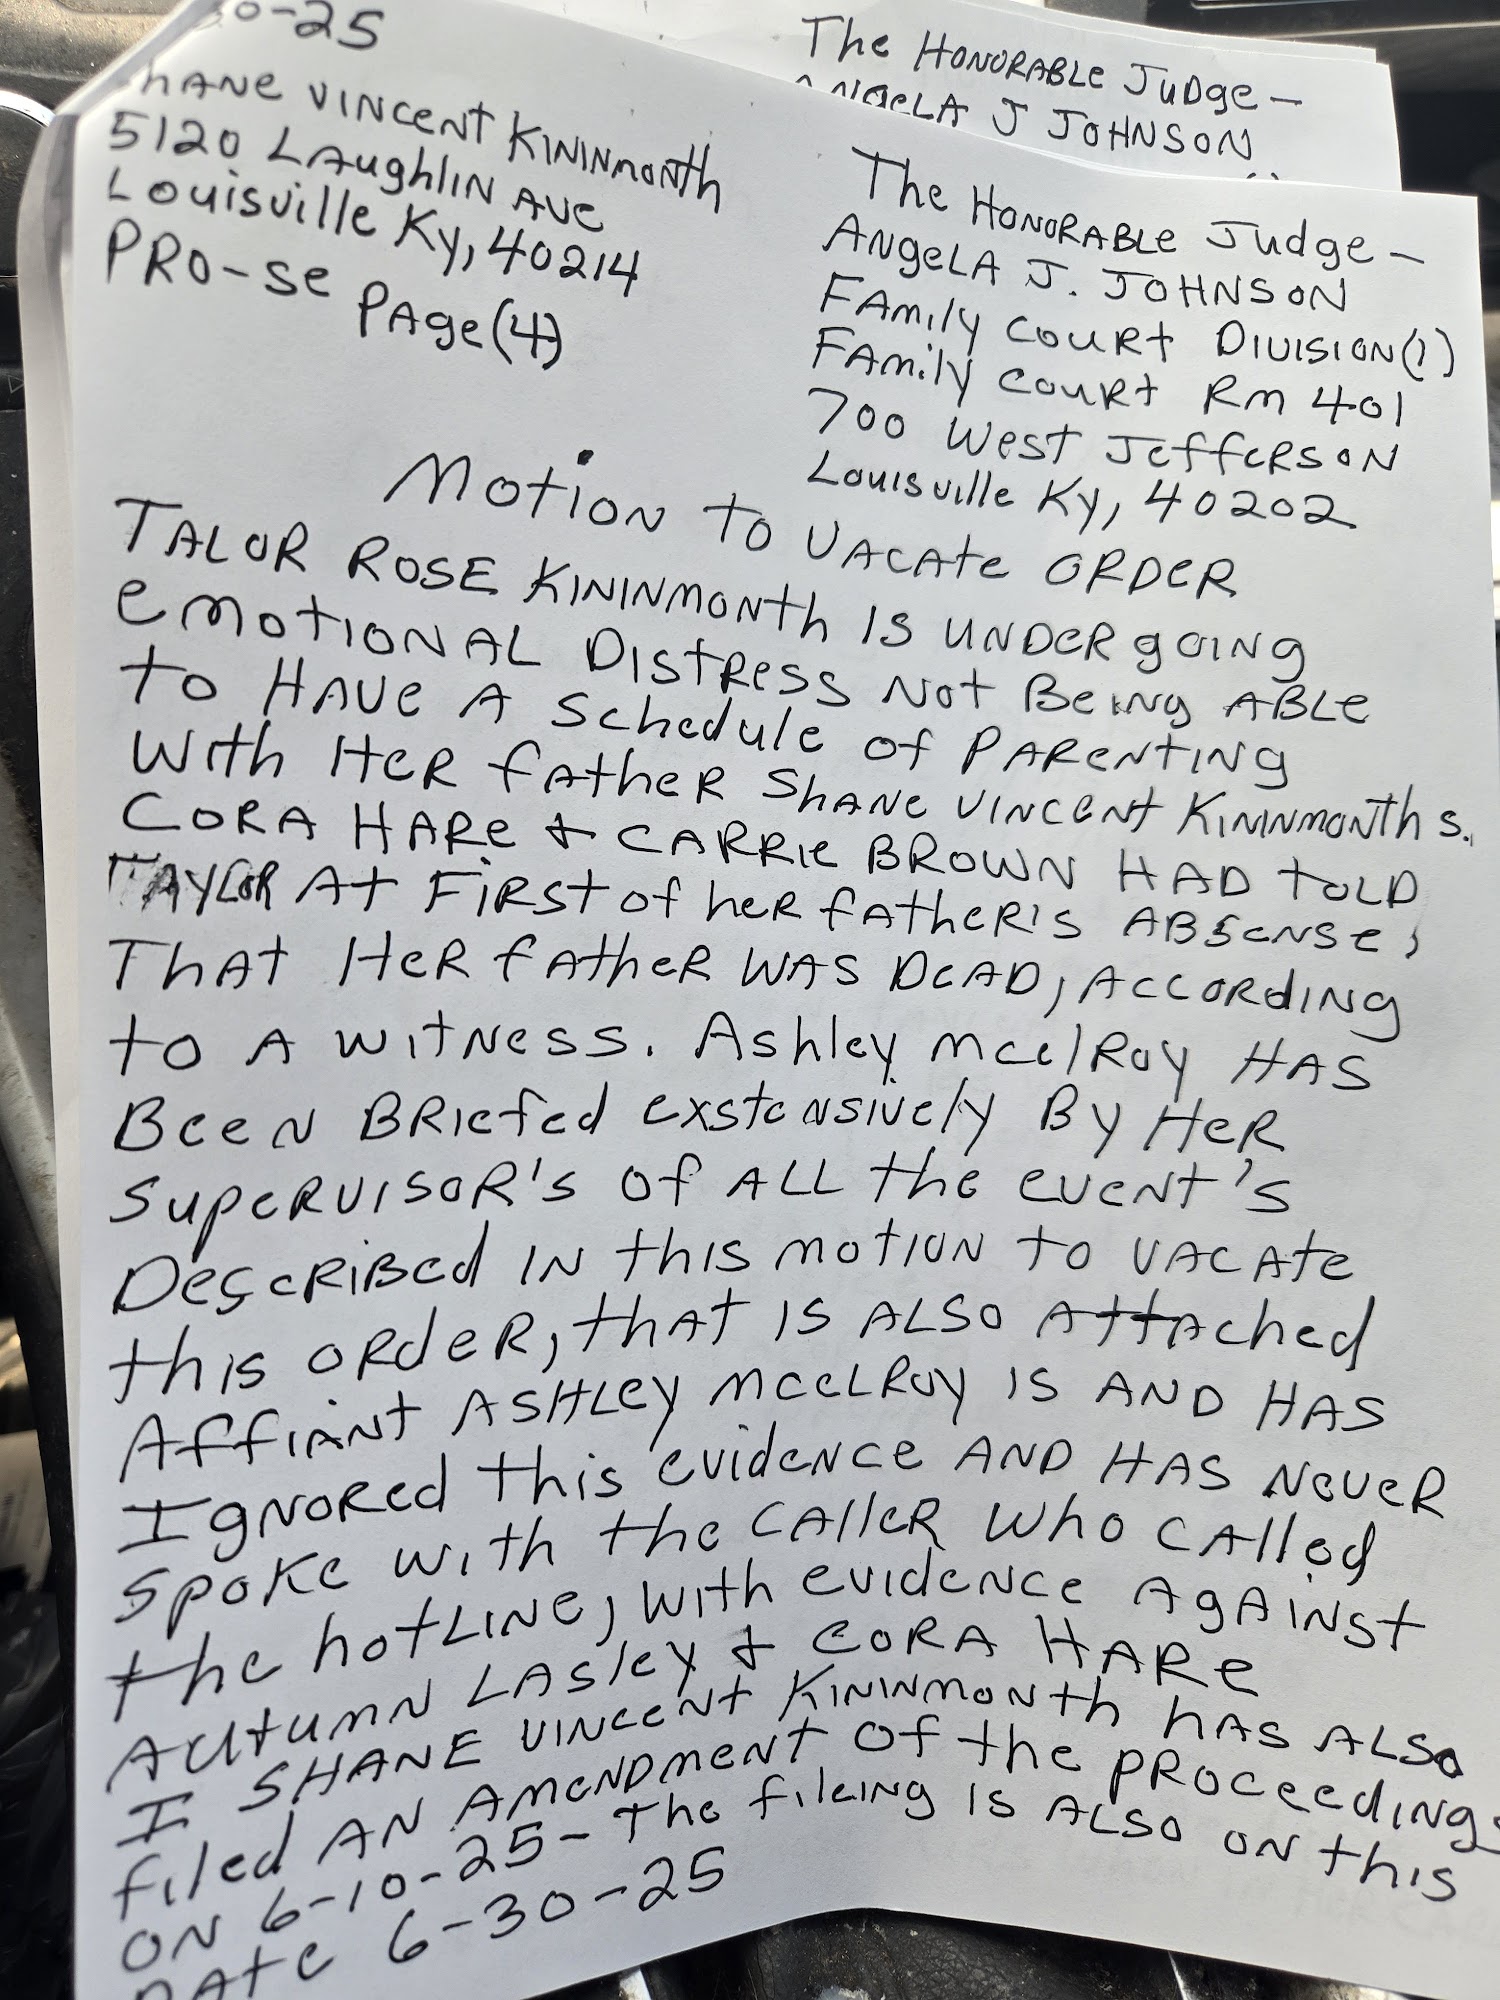 0-25
hane Vincent Kininmonth
5120 Laughlin Ave
Louisville Ky, 40214
PRO-se Page (4)
The Honorable Judge -
Angela J Johnson
The Honorable Judge -
Angela J. Johnson
Family Court Division (1)
Family Court Rm 401
700 West Jefferson
Louisville Ky, 40202
Motion to Vacate Order
TALOR ROSE Kininmonth is undergoing
emotional Distress not Being able
to Have a Schedule of Parenting
with Her father Shane Vincent Kininmonth s.
Cora Hare & Carrie Brown Had told
Taylor At First of her father's Absense,
That Her father was Dead, according
to a witness. Ashley mcelRoy Has
Been Briefed exstensively By Her
Supervisor's of ALL the event's
Described in this motion to vacate
this order, that is also attached
Affiant Ashley mcelRoy is and Has
Ignored this evidence and Has never
spoke with the caller who called
the hotline, with evidence against
Autumn Lasley & Cora Hare
I Shane Vincent Kininmonth has also
filed an Amendment of the proceedings
on 6-10-25- The fileing is also on this
Date 6-30-25